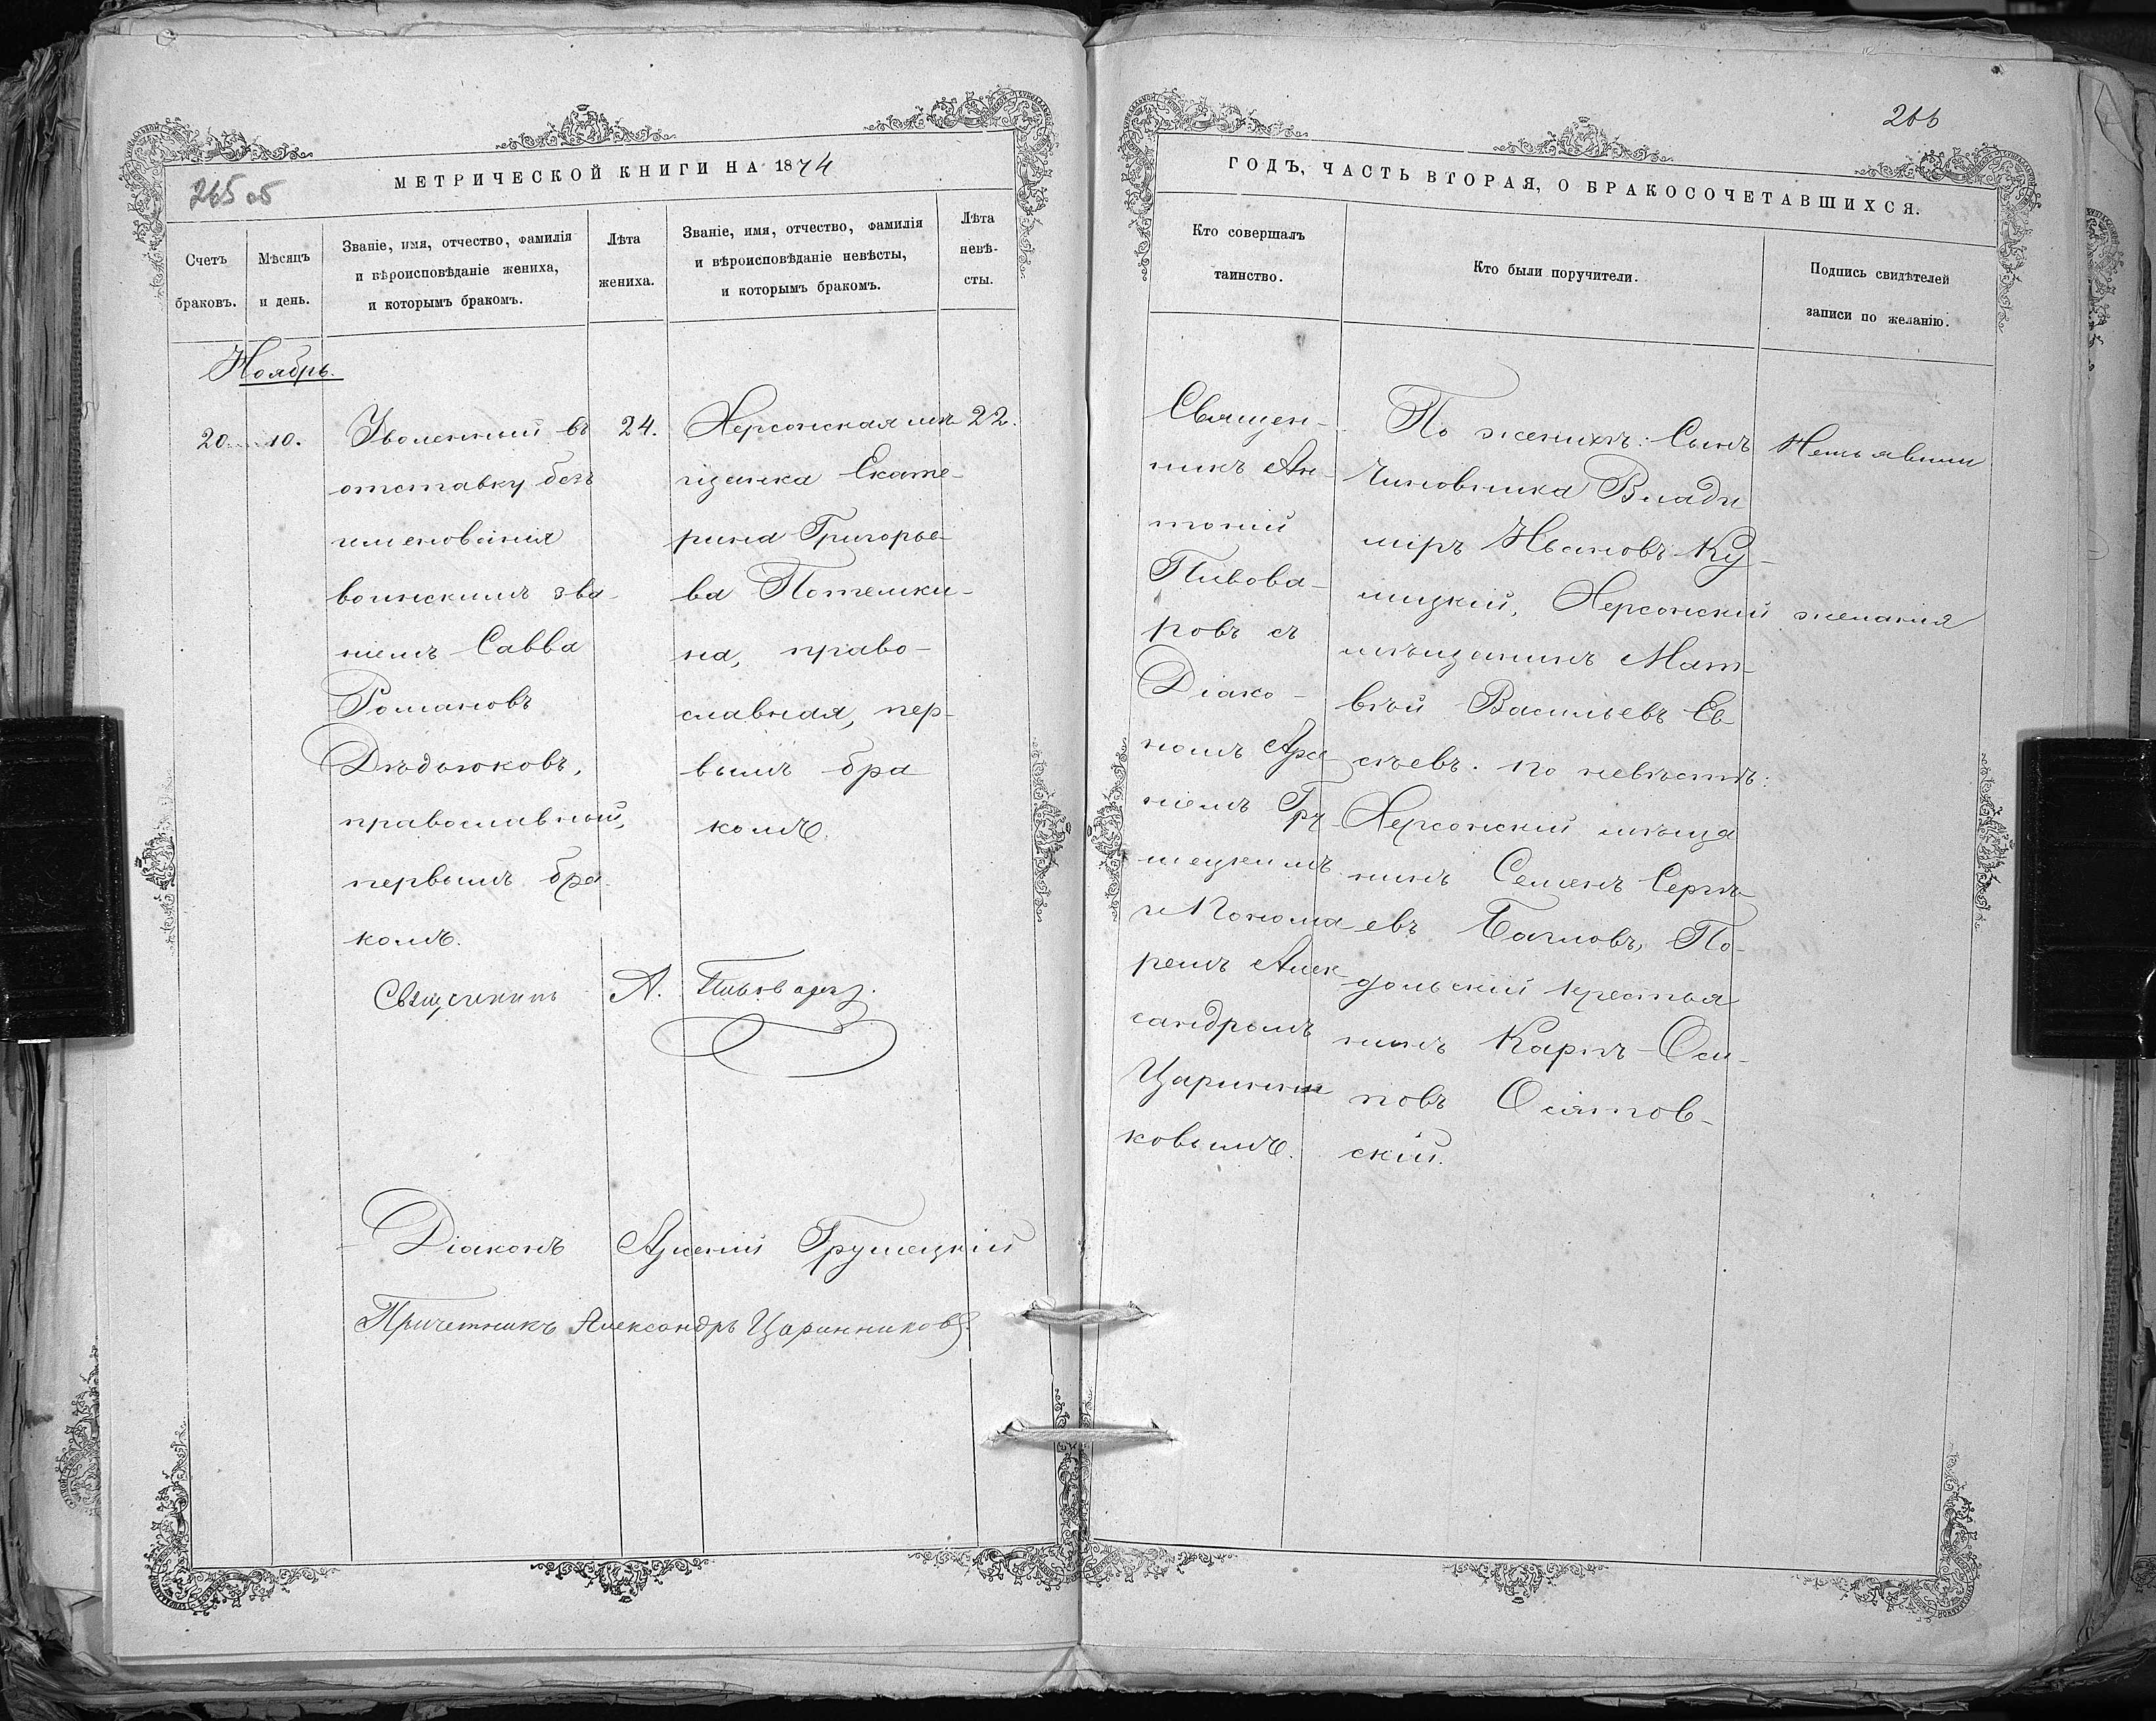 266
МЕТРИЧЕСКОЙ КНИГИ НА 1874
265 об
Счетъ
браковъ.
Мѣсяцъ
и день.
Званіе, имя, отчество, фамилія
и вѣроисповѣданіе жениха,
и которымъ бракомъ.
Лѣта
жениха.
Званіе, имя, отчество, фамилія
и вѣроисповѣданіе невѣсты,
и которымъ бракомъ.
Лѣта
невѣ-
сты.
Ноябрь.
20
10.
Уволенный въ
отставку безъ
именованія
воинскимъ зва-
ніемъ Савва
Романовъ
Дѣдюковъ,
православный,
первымъ бра-
комъ.
24.
Херсонская мѣ-
щанка Екате-
рина Григорье-
ва Потемки-
на, право-
славная, пер-
вымъ бра
комъ.
22.
Священникъ А. Пивоваровъ.
Діаконъ Арсеній Грушецкій
Причетникъ Александръ Царинниковъ.
ГОДЪ, ЧАСТЬ ВТОРАЯ, О БРАКОСОЧЕТАВШИХСЯ.
Кто совершалъ
таинство.
Кто были поручители.
Подпись свидѣтелей
записи по желанію.
Священ-
никъ Ан-
тоній
Пивова-
ровъ съ
Діако-
номъ Арсе
ніемъ Гру-
шецкимъ
и Понома
ремъ Алек
сандромъ
Царинни
ковымъ.
По женихѣ: Сынъ
Чиновника Влади
міръ Ивановъ Ку-
мицкій, Херсонскій
мѣщанинъ Мат-
вѣй Васильевъ Ев
сѣевъ. по невѣстѣ:
Херсонскій мѣща
нинъ Семенъ Сергѣ-
евъ Багловъ, По-
дольскій крестья
нинъ Карпъ Оси-
повъ Осятов-
скій.
Неизъявили
желанія